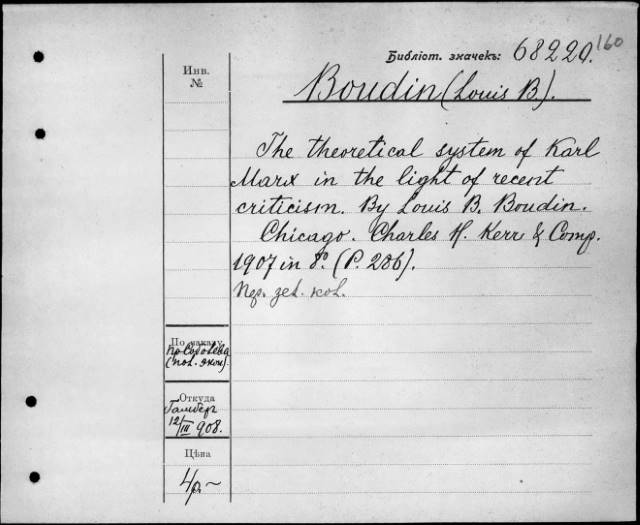 Библіот. значекъ: 68220. 160
Инв.
№
Boudin (Louis B).
The theoretical system of Karl
Marx in the light of recent
criticism. By Louis B. Boudin.
Chicago. Charles H. Kerr & Comp.
1907 in 8º. (P. 286).
По заказу
(пол. экон).
Откуда
12/III 908.
Цѣна
4р ~